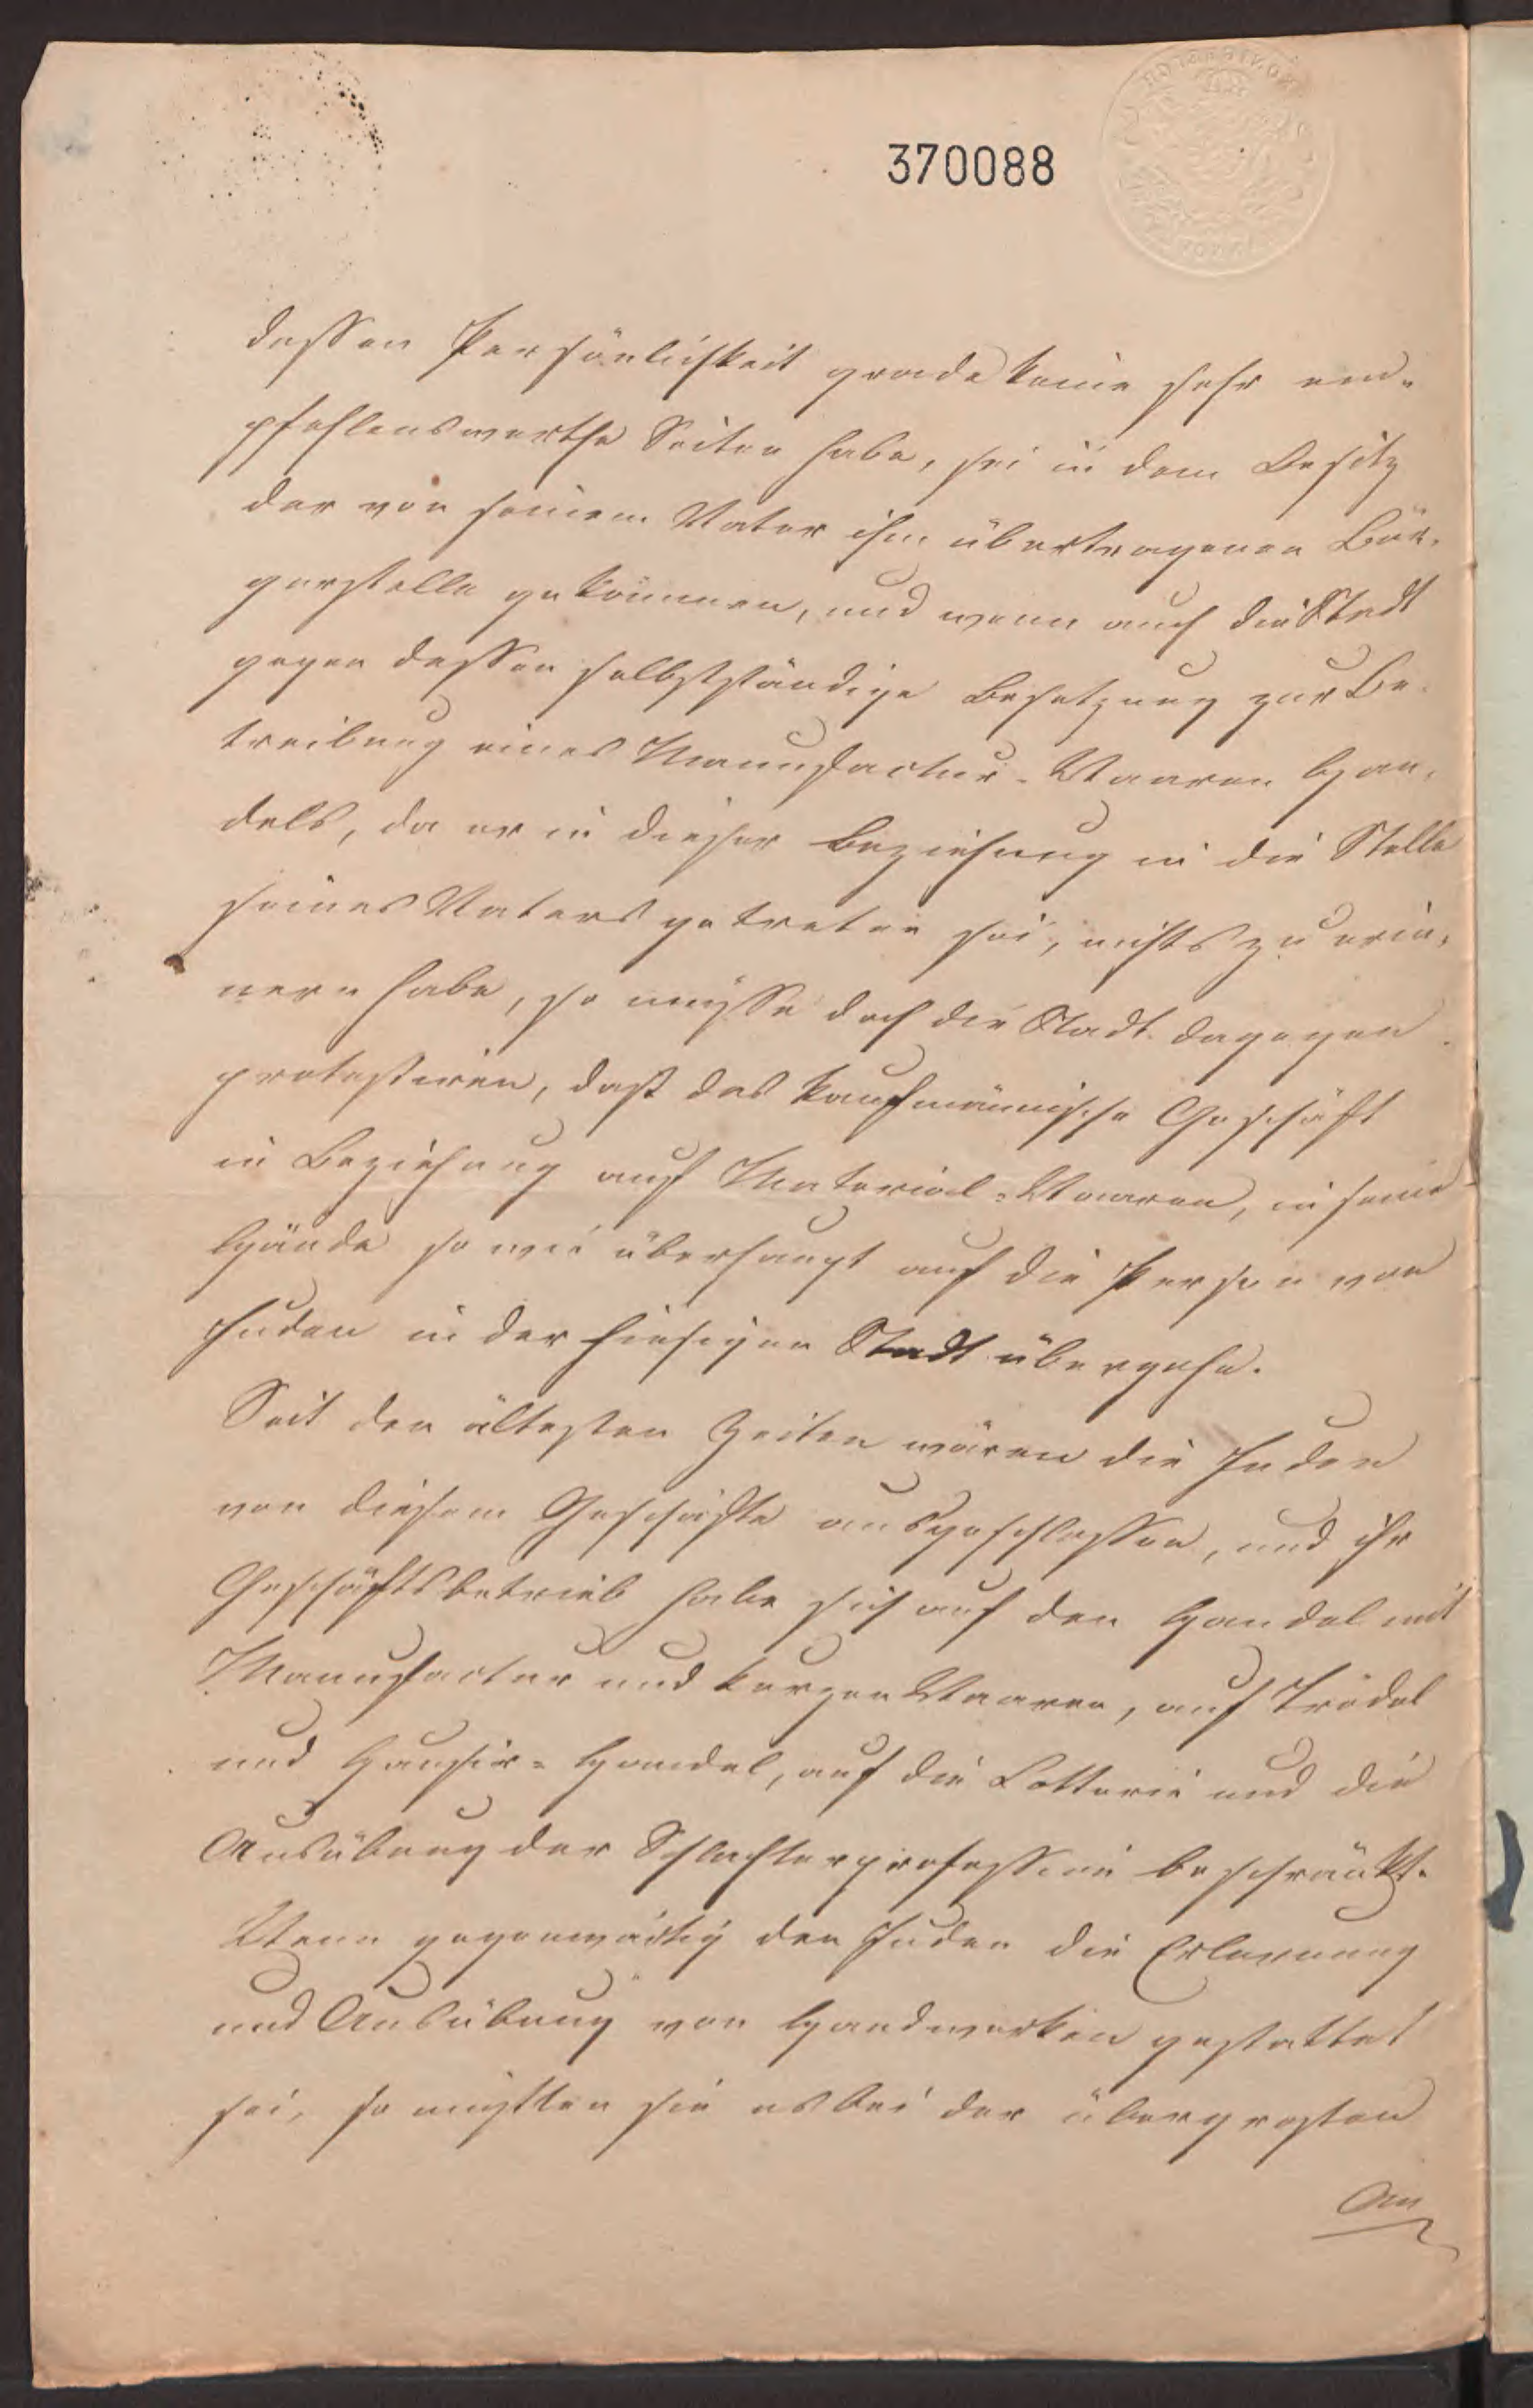 370088
dessen Persönlichkeit grade keine sehr em-
pfehlenswerthe Seiten habe, sei in dem Besitz
der von seinem Vater ihm übertragenen Bür-
gerstelle gekommen, und wenn auch die Stadt
gegen dessen selbstständige Besetzung zur Be-
treibung eines Manufactur-Waaren Han-
dels, da er in dieser Beziehung in die Stelle
seines Vaters getreten sei, nichts zu erin-
nern habe, so müsse doch die Stadt dagegen
protestiren, daß das kaufmännische Geschäft
in Beziehung auf Material-Waaren, in seine
Hände so wie überhaupt auf die Person von
Juden in der hiesigen Stadt übergehe.
Seit den ältesten Zeiten wären die Juden
von diesem Geschäfte ausgeschlossen, und ihr
Geschäftsbetrieb habe sich auf den Handel mit
Manufactur und kurzen Waaren, auf Trödel
und Hausir-Handel, auf die Lotterie und die
Ausübung der Schlachterprofession beschränkt.
Wenn gegenwärtig den Juden die Erlernung
und Ausübung von Handwerken gestattet
sei, so müßten sie es bei der übergrosten
An